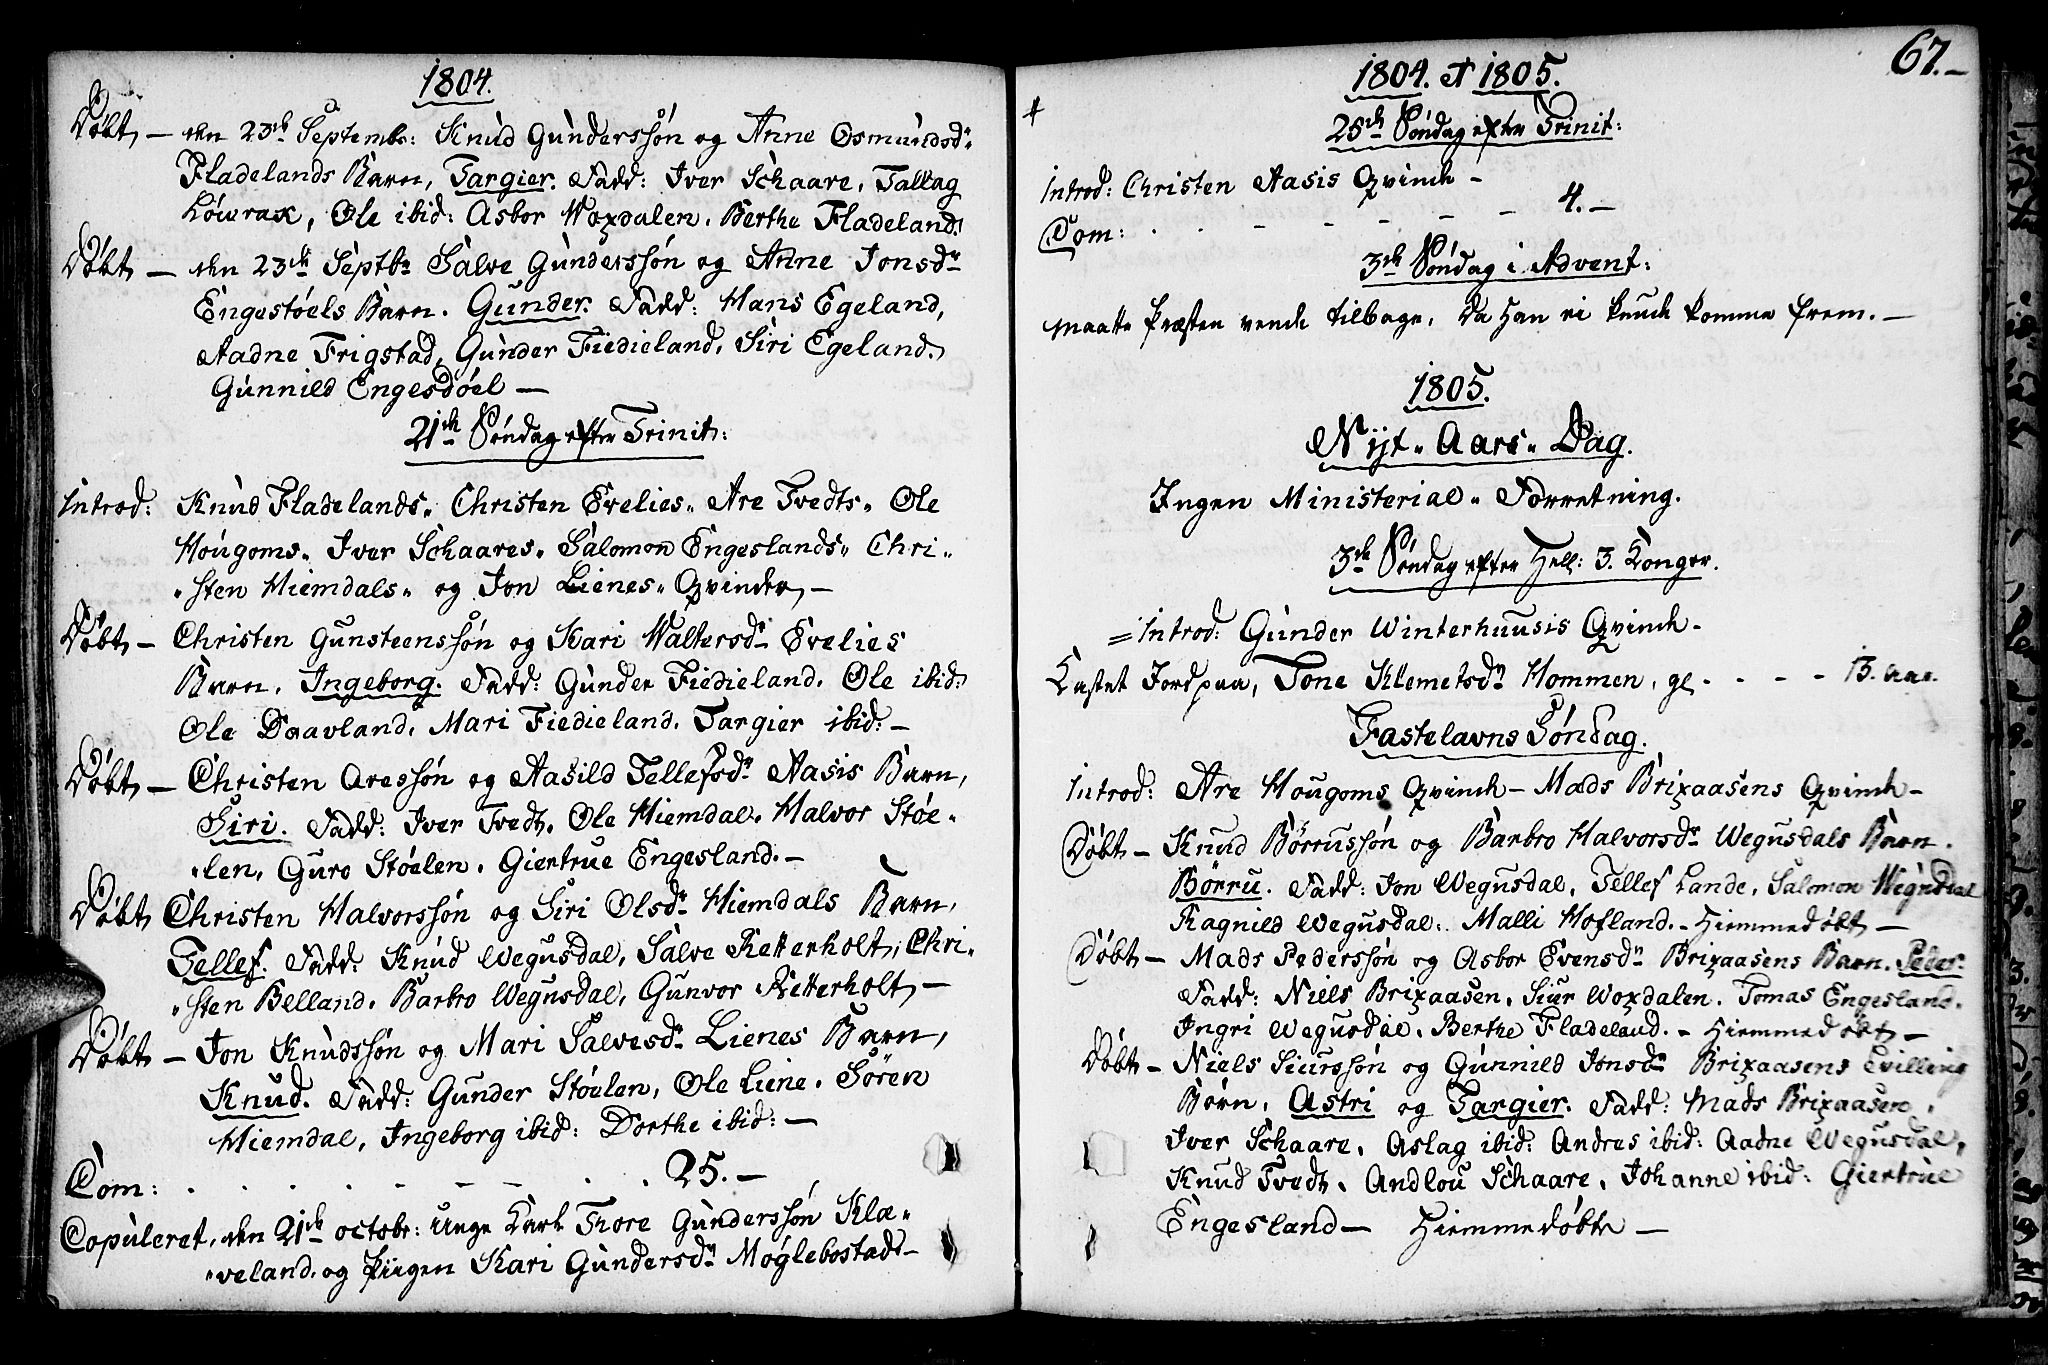 1804.
Døbt — den 23de Septembr: Knud Gunderssøn og Anne Osmundsdr
Fladelands Barn, Targier. Fadd: Iver Schaare, Tallag
Løwrax, Ole ibid: Asbor Woxdalen. Berthe Fladeland.
Døbt — den 23de Septbr Salve Gunderssøn og Anne Jonsdr
Engestøels Barn. Gunder. Fadd: Hans Egeland,
Aadne Frigstad, Gunder Fiedieland, Siri Egeland.
Gunnild Engesdøel —
21de Søndag efter Trinit:
Introd: Knud Fladelands, Christen Evelies, Are Tvedts, Ole
Hougoms, Iver Schaares, Salomon Engeslands, Chri„
„sten Hiemdals, og Jon Lienes, Qvinder, —
Døbt — Christen Gunsteenssøn og Kari Waltersdr Evelies
Barn, Ingeborg. Fadd: Gunder Fiedieland. Ole ibid:
Ole Daavland. Mari Fiedieland. Targier ibid: —
Døbt — Christen Aressøn og Aasild Tellefsdr Aasis Barn,
Siri. Fadd: Iver Tvedt, Ole Hiemdal. Halvor Støe„
„len, Guro Støelen. Giertrue Engesland. —
Døbt Christen Halvorssøn og Siri Olsdr Hiemdals Barn,
Tellef. Fadd: Knud Wegusdal, Salve Retterholt, Chri„
„sten Belland. Barbro Wegusdal, Gunvor Retterholt —
Døbt — Jon Knudssøn og Mari Salvesdr Lienes Barn,
Knud. Fadd: Gunder Støelen, Ole Liene. Søren
Hiemdal, Ingeborg ibid: Dorthe ibid: —
Com: . . . . — — . . 25. —
Copuleret, den 21de octobr: Unge Karl Thore Gunderssøn Klæ„
„veland. og Piigen Kari Gundersdr Møglebostad —
67. —
1804. et 1805.
25de Søndag efter Trinit:
Introd: Christen Aasis Qvinde —
Com: . . — — — — — 4. —
3de Søndag i Advent:
maatte Præsten vende tilbage, da han ei kunde komme frem. —
1805.
Nyt„ Aars„ Dag.
Ingen Ministerial„ Forretning.
3de Søndag efter Hell: 3. Konger.
Introd: Gunder Winterhuusis Qvinde —
Kastet Jord paa, Tone Klemetsdr Hommen, gl . - - - 13. aar.
Fastelavns Søndag.
Introd: Are Hougoms Qvinde — Mads Brixaasens Qvinde —
Døbt — Knud Børrussøn og Barbro Halvorsdr Wegusdals Barn.
Børru. Fadd: Jon Wegusdal, Tellef Lande, Salomon Wegusdal
Ragnild Wegusdal. Malli Hofland. — Hiemmedøbt —
Døbt — Mads Pederssøn og Asbor Evensdr Brixaasens Barn. Peder.
Fadd: Niels Brixaasen, Siur Woxdalen. Tomas Engesland.
Ingri Wegusdal. Berthe Fladeland. — Hiemmedøbt —
Døbt — Niels Siurssøn og Gunnild Jonsdr Brixaasens Tvilling
Børn, Astri og Targier. Fadd: Mads Brixaasen,
Iver Schaare, Aslag ibid: Andres ibid: Aadne Wegusdal,
Knud Tvedt, Andlou Schaare, Johanne ibid: Giertrue
Engesland — Hiemmedøbte —